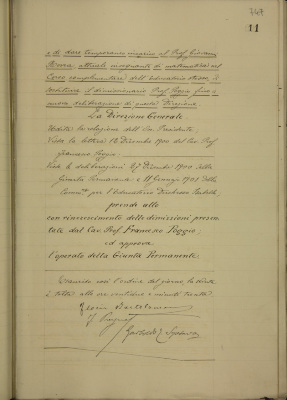 747
11
e di dare temporaneo incarico al Prof. Giovanni
attuale insegnante di matematica nel
Corso complementare dell'educatorio stesso, di
sostituire il dimissionario Prof. Poggio fino a
nuova deliberazione di questa Direzione.
La Direzione Generale
Udita la relazione dell' On. Presidente
Vista la lettera 12 Dicembre 1900 del Cav. Prof.
Francesco Poggio.
Viste le deliberazioni 27 Dicembre 1900 della
Giunta Permanente e 11 Gennaio 1901 della
per l'Educatorio
prende atto
con rincrescimento delle dimissioni presen
tate dal Cav. Prof. Francesco Poggio,
ed approva
l'operato della Giunta Permanente.
Esaurito così l'ordine del giorno, la seduta
è tolta alle ore ventidue e minuti trenta.